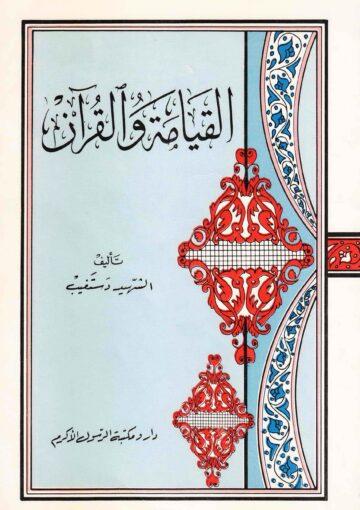 القيامة وٱلقرآن
تأليف
الشهيد دستغيب
دار ومكتبة الرسول الأكرم